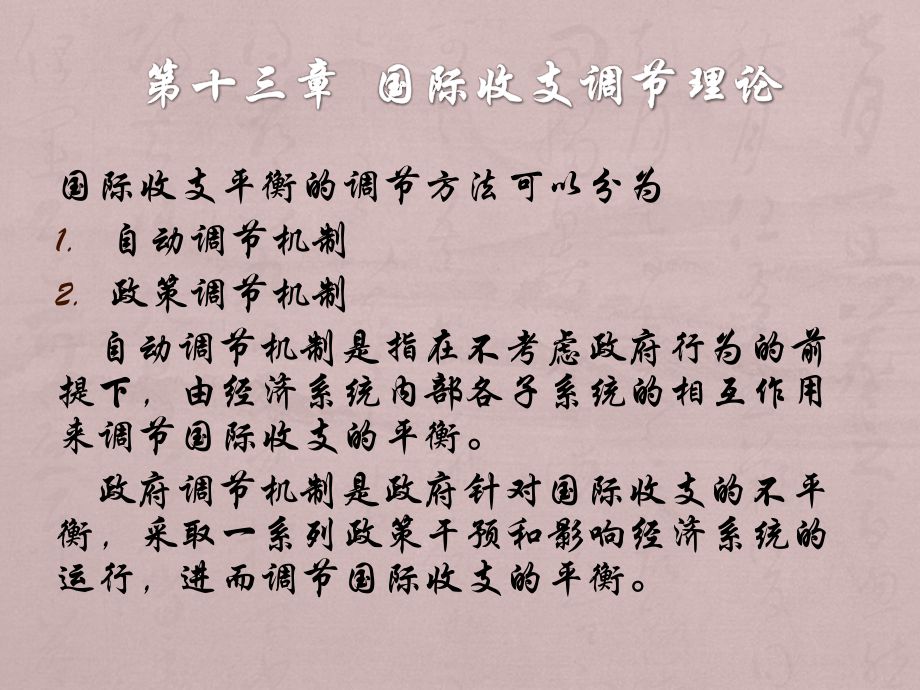 第十三章 国际收支调节理论
国际收支平衡的调节方法可以分为
1. 自动调节机制
2. 政策调节机制
自动调节机制是指在不考虑政府行为的前
提下，由经济系统内部各子系统的相互作用
来调节国际收支的平衡。
政府调节机制是政府针对国际收支的不平
衡，采取一系列政策干预和影响经济系统的
运行，进而调节国际收支的平衡。